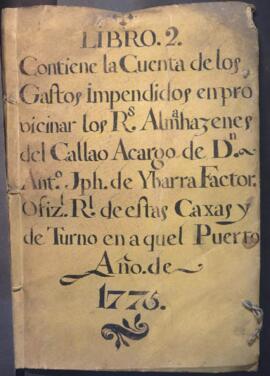 LIBRO. 2.
Contiene la Cuenta de los
Gastos Impendidos en pro
vicinar los Rs. Almahazenes
del Callao Acargo de Dn.
Anto. Jph. de Ybarra Factor.
Ofizl. Rl. de estas Caxas y
de Turno en a quel Puerto
Año. de
1775.